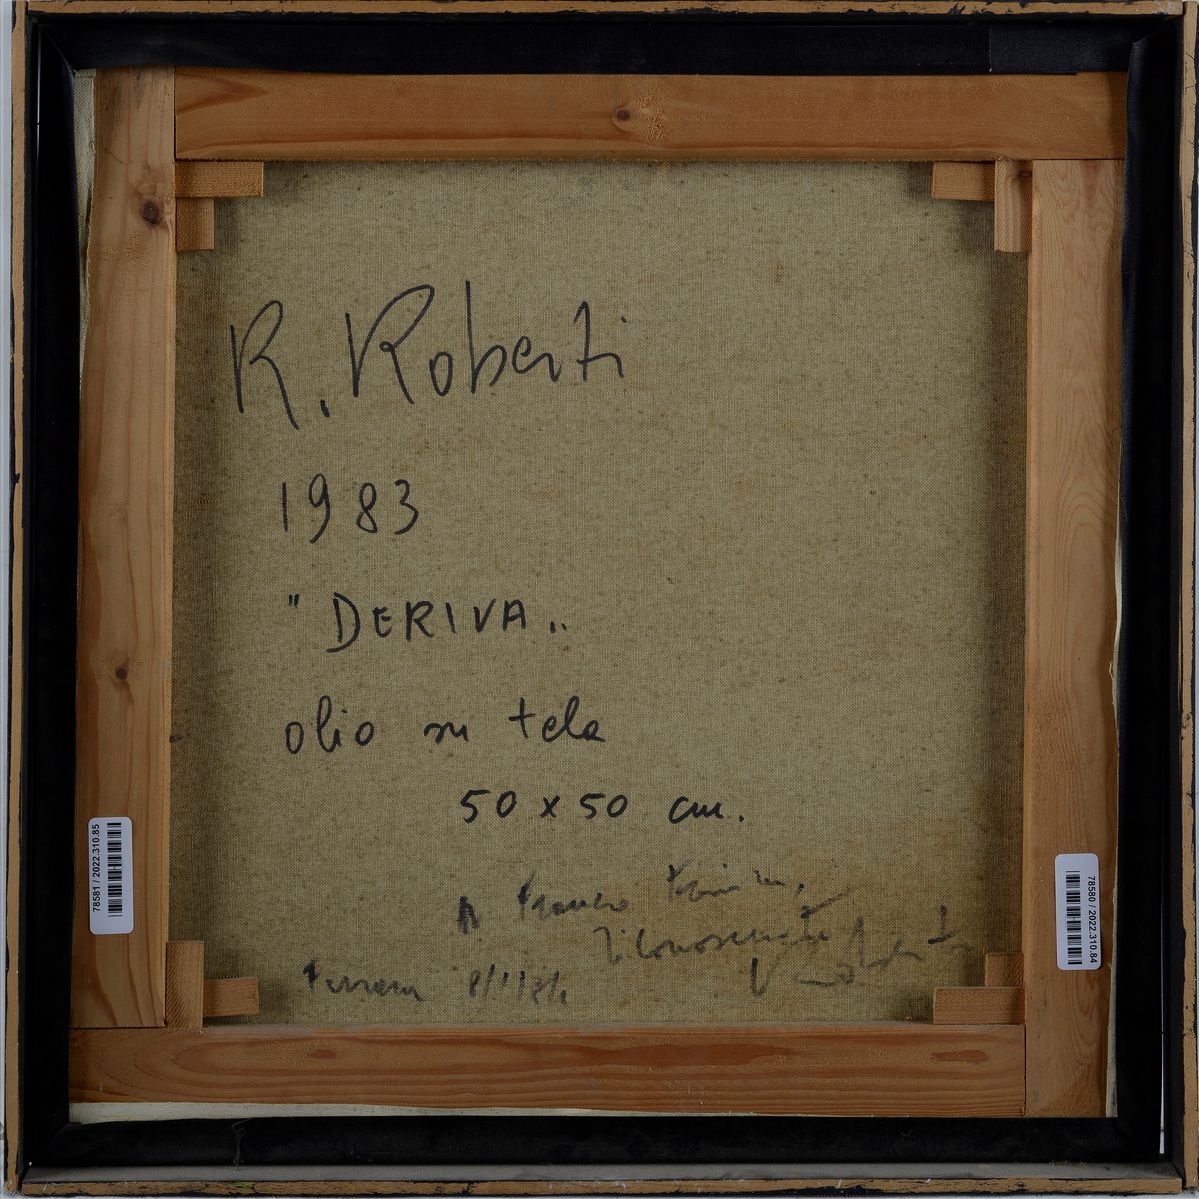 R. Roberti
1983
"DERIVA"
olio su tela
50 x 50 cm.
A Franco
riconoscente
Ferrara
78581 / 2022.310.85
78580 / 2022.310.84